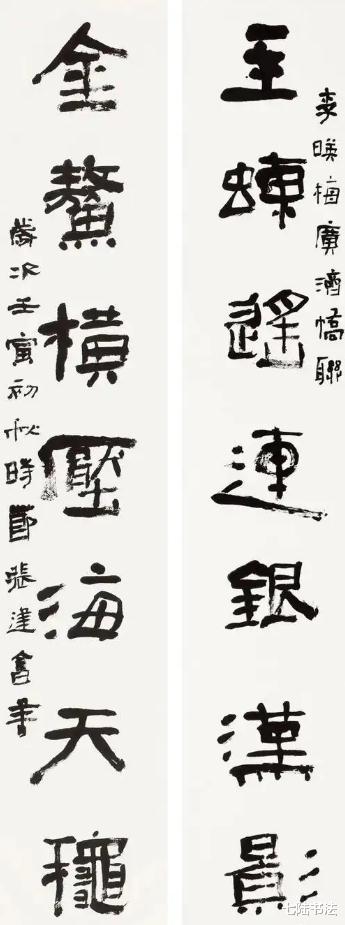 玉蝀遙連銀漢影
暎梅廣濟橋聯
金鰲橫壓海天龝
歲次壬寅初秋時節張建會書
七陆书法